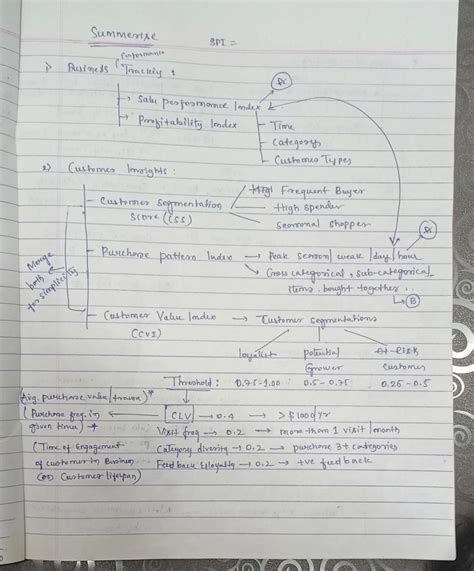 Summerise
SPI =
1) Business Performance Tracking :
→ Sale performance Index
→ Profitability Index
- Time
- Category
- Customer Types
2) Customer Insights :
- Customer Segmentation
Score (CSS)
Frequent Buyer
High Spender
Seasonal Shopper
- Purchase pattern Index → Peak season / weak / day / hour
→ Cross categorical, sub-categorical
items. bought together..
→ B
Merge
both
for simplicity
- Customer Value Index → Customer Segmentations
(CVI)
loyalist
potential
Grower
At-Risk
Customer
Threshold : 0.75-1.00 0.5-0.75 0.25-0.5
(Avg. purchase value/
(Purchase freq. in
given time) *
(Time of Engagement
of customer in Business
(or) Customer lifespan)
CLV → 0.4 → > $1000/yr
Visit freq → 0.2 → more than 1 visit / month
Category diversity → 0.2 → purchase 3+ categories
Feedback & loyalty → 0.2 → +ve feedback